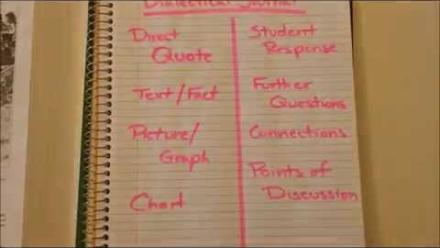 Dialectical Journal
Direct
Quote
Text/Fact
Picture/
Graph
Chart
Student
Response
Further
Questions
Connections
Points of
Discussion